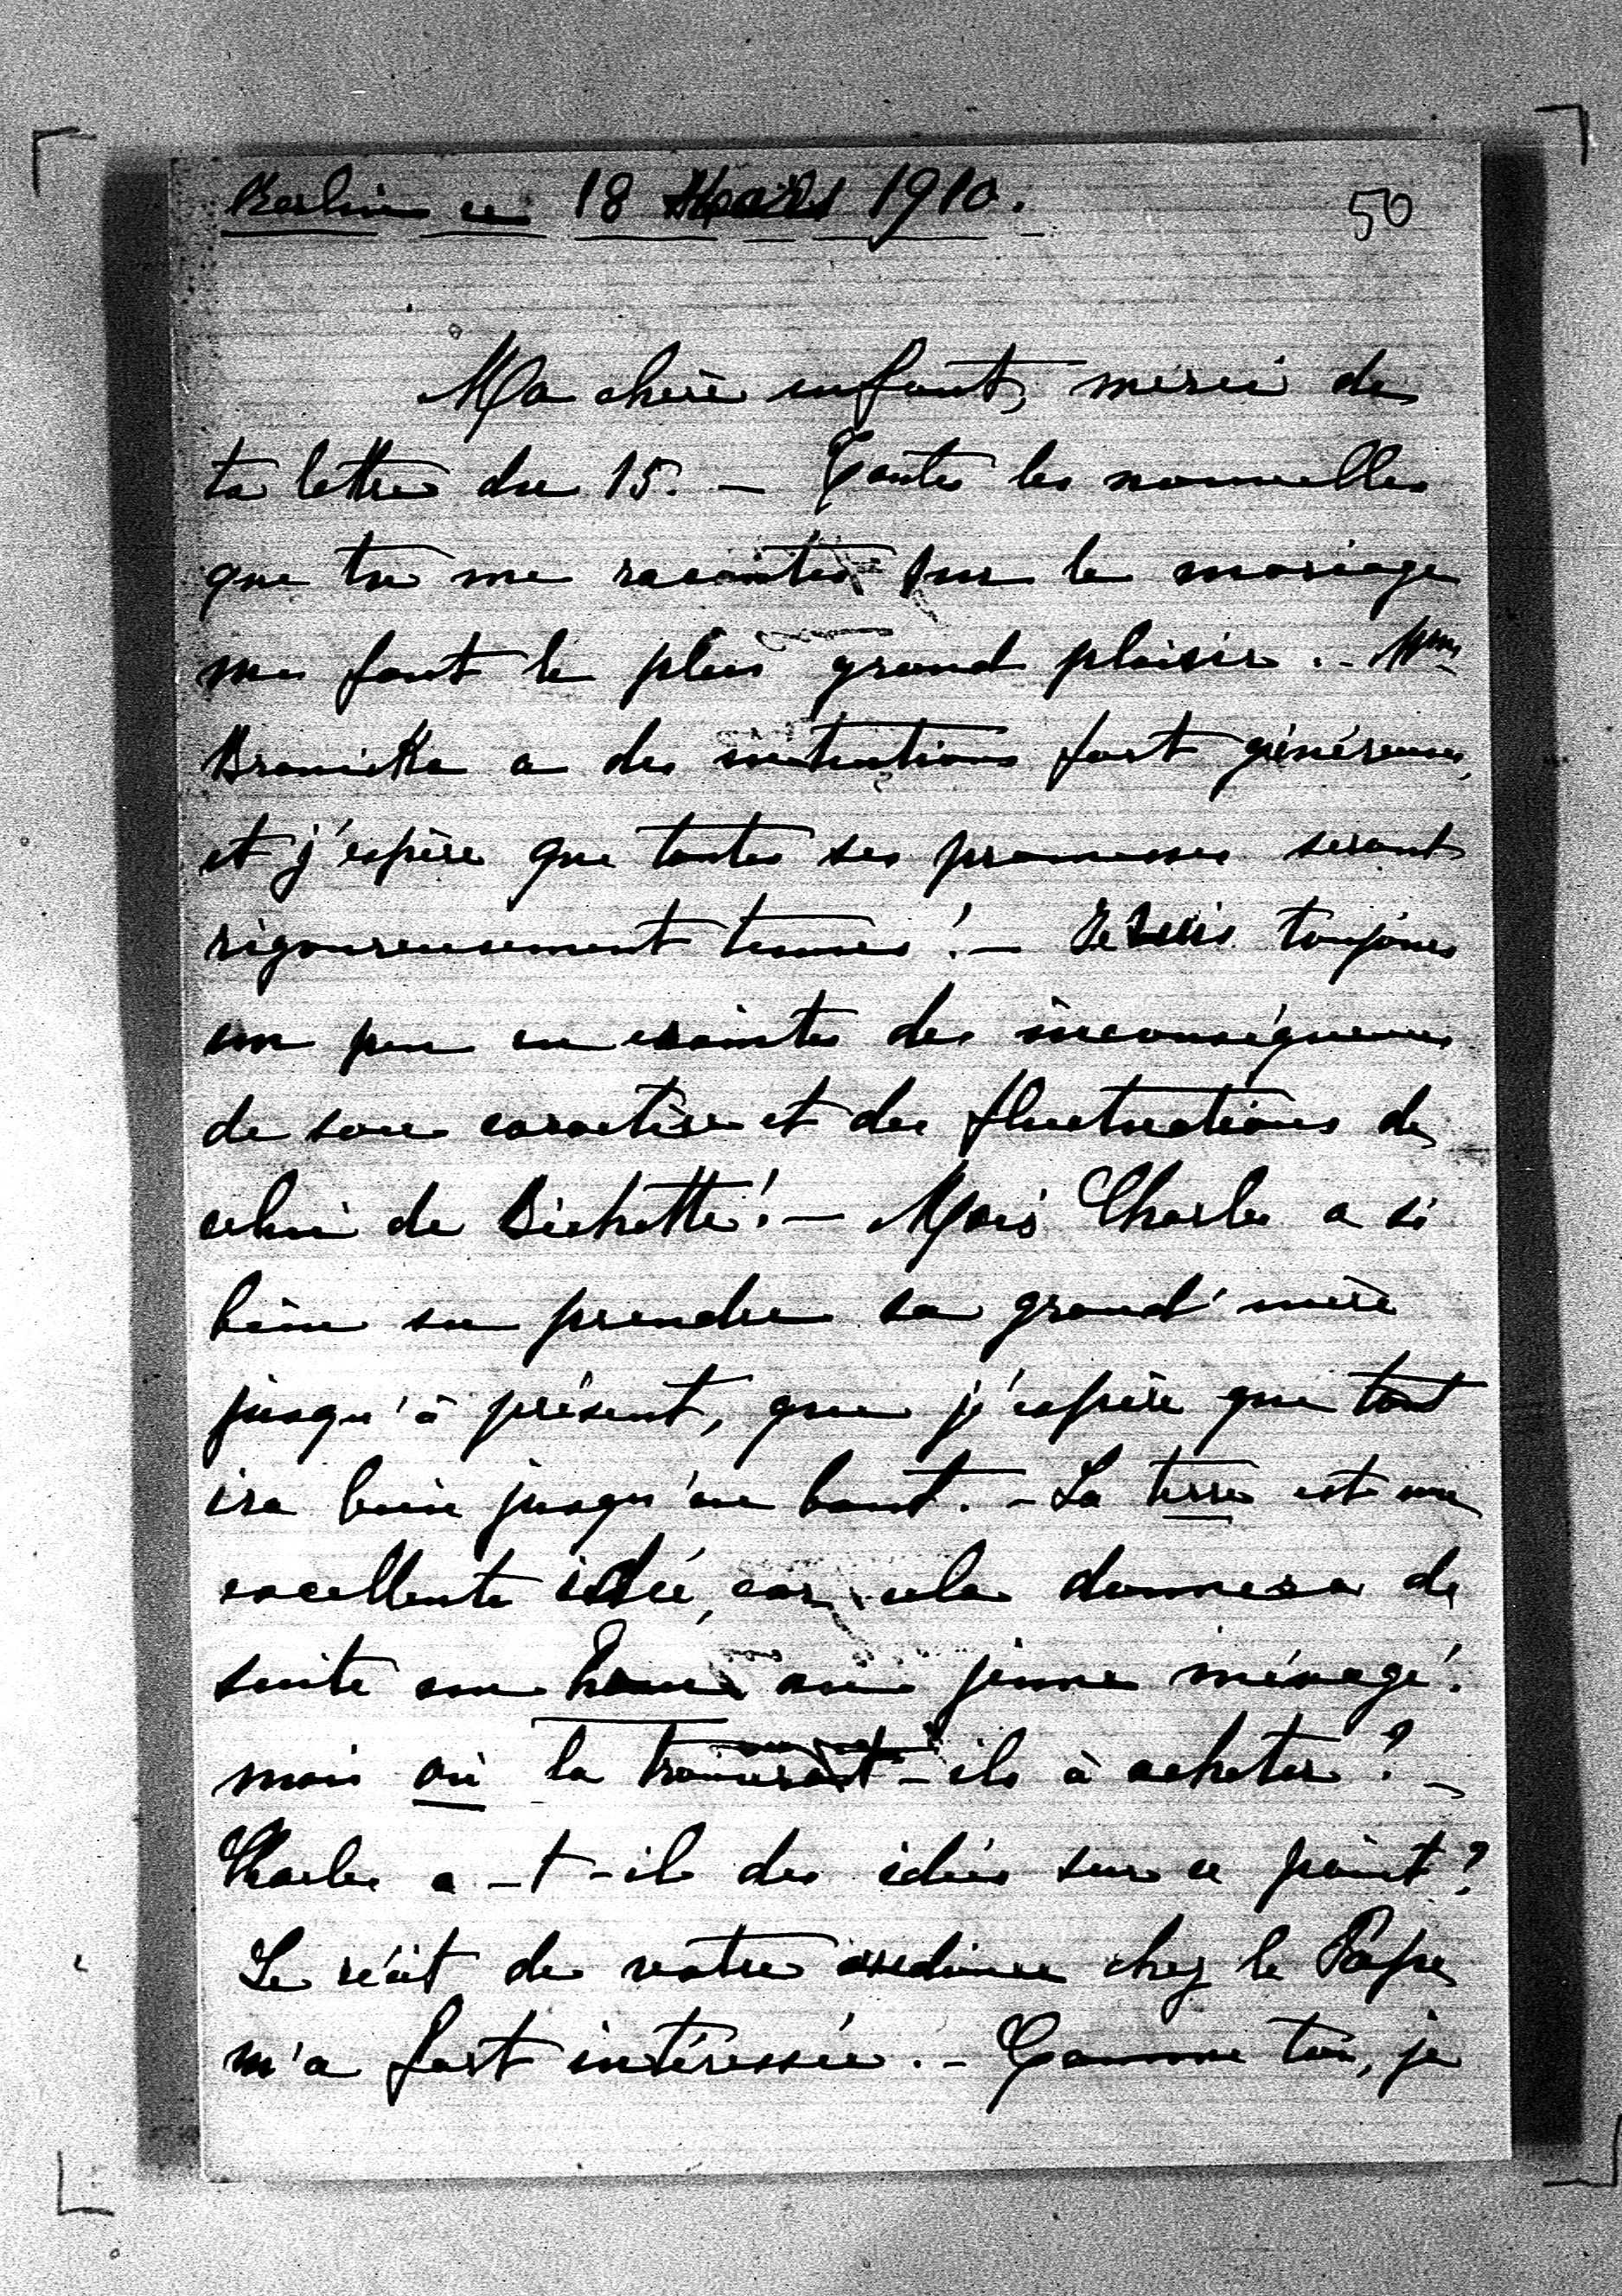 Berlin ce 18 Mars 1910.
50
Ma chère enfant, merci de
ta lettre du 15. – Toutes les nouvelles
que tu me racontes sur le mariage
me font le plus grand plaisir. – Mme
Branicka a des intentions fort généreuses,
et j'espère que toutes ses promesses seront
rigoureusement tenues! – Je suis toujours
un peu en crainte des inconséquences
de son caractère et des fluctuations de
celui de Bichette! – Mais Charles a si
bien su prendre sa grand'mère
jusqu'à présent, que j'espère que tout
ira bien jusqu'au bout. – La terre est une
excellente idée, car cela donnera de
suite un home au jeune ménage.
mais où la trouveront-ils à acheter? –
Charles a-t-il des idées sur ce point?
Le récit de votre audience chez le Pape
m'a fort intéressée. – Comme toi, je